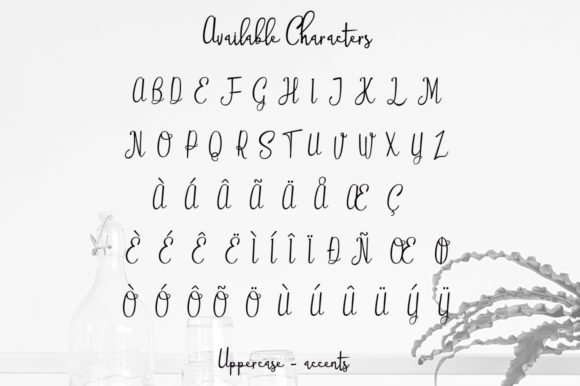 Available Characters
A B D E F G H I J K L M
N O P Q R S T U V W X Y Z
À Á Â Ã Ä Å Æ Ç
È É Ê Ë Ì Í Î Ï Ð Ñ Œ Ø
Ò Ó Ô Õ Ö Ù Ú Û Ü Ý Ÿ
Uppercase - accents